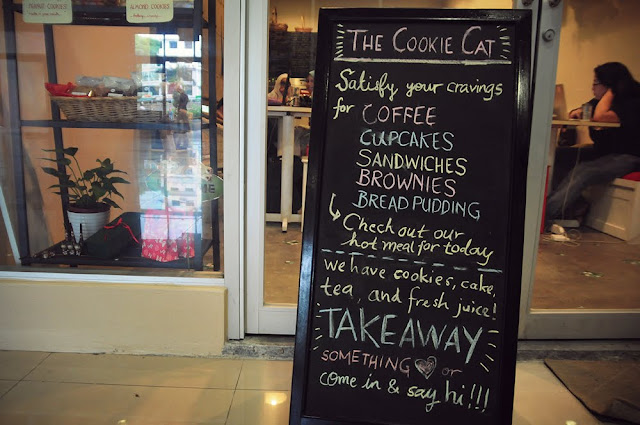 ALMOND COOKIES
THE COOKIE CAT
Satisfy your cravings
for COFFEE
CUPCAKES
SANDWICHES
BROWNIES
BREAD PUDDING
Check out our
hot meal for today
we have cookies, cake,
tea, and fresh juice!
TAKEAWAY
SOMETHING or
come in & say hi!!!